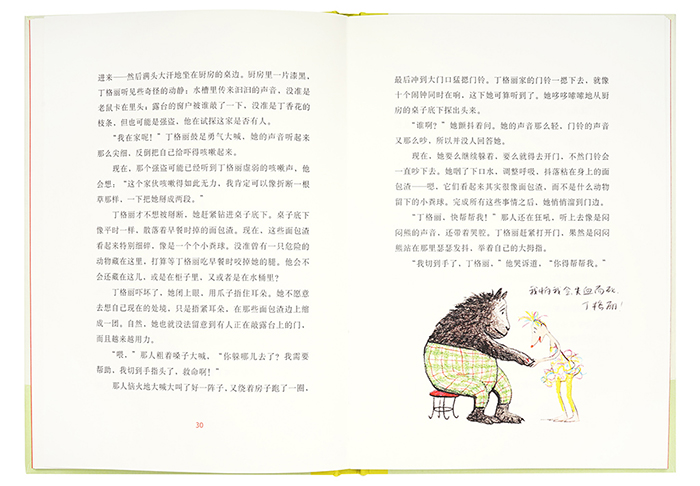 进来——然后满头大汗地坐在厨房的桌边。厨房里一片漆黑，
丁格丽听见些奇怪的动静：水槽里传来汩汩的声音，没准是
老鼠卡在里头；露台的窗户被谁敲了一下，没准是丁香花的
枝条，但也可能是强盗，他在试探这家是否有人。
“我在家呢！”丁格丽鼓足勇气大喊，她的声音听起来
那么尖细，反倒把自己给吓得咳嗽起来。
现在，那个强盗可能已经听到丁格丽虚弱的咳嗽声，他
会想：“这个家伙咳嗽得如此无力，我肯定可以像折断一根
草那样，一下把她掰成两段。”
丁格丽才不想被掰断，她赶紧钻进桌子底下。桌子底下
像平时一样，散落着早餐时掉的面包渣。现在，这些面包渣
看起来特别细碎，像是一个个小粪球。没准曾有一只危险的
动物藏在这里，打算等丁格丽吃早餐时咬掉她的腿。他会不
会还藏在这儿，或是在柜子里，又或者是在水桶里？
丁格丽吓坏了，她闭上眼，用爪子捂住耳朵。她不愿意
去想自己现在的处境，只是捂紧耳朵，在那些面包渣边上缩
成一团。自然，她也就没法留意到有人正在敲露台上的门，
而且越来越用力。
“喂，”那人粗着嗓子大喊，“你躲哪儿去了？我需要
帮助，我切到手指头了，救命啊！”
那人恼火地大喊大叫了好一阵子，又绕着房子跑了一圈，
30
最后冲到大门口猛摁门铃。丁格丽家的门铃一摁下去，就像
十个闹钟同时在响，这下她可算听到了。她哆哆嗦嗦地从厨
房的桌子底下探出头来。
“谁啊？”她颤抖着问。她的声音那么轻，门铃的声音
又那么吵，所以并没人回答她。
现在，她要么继续躲着，要么就得去开门，不然门铃会
一直吵下去。她咽了下口水，调整呼吸，抖落粘在身上的面
包渣——嗯，它们看起来其实很像面包渣，而不是什么动物
留下的小粪球。完成所有这些事情之后，她悄悄溜到门边。
“丁格丽，快帮帮我！”那人还在狂吼，听上去像是闷
闷熊的声音，还带着哭腔。丁格丽赶紧打开门，果然是闷闷
熊站在那里瑟瑟发抖，举着自己的大拇指。
“我切到手了，丁格丽，”他哭诉道，“你得帮帮我。”
我怕我会失血而死，
丁格丽！